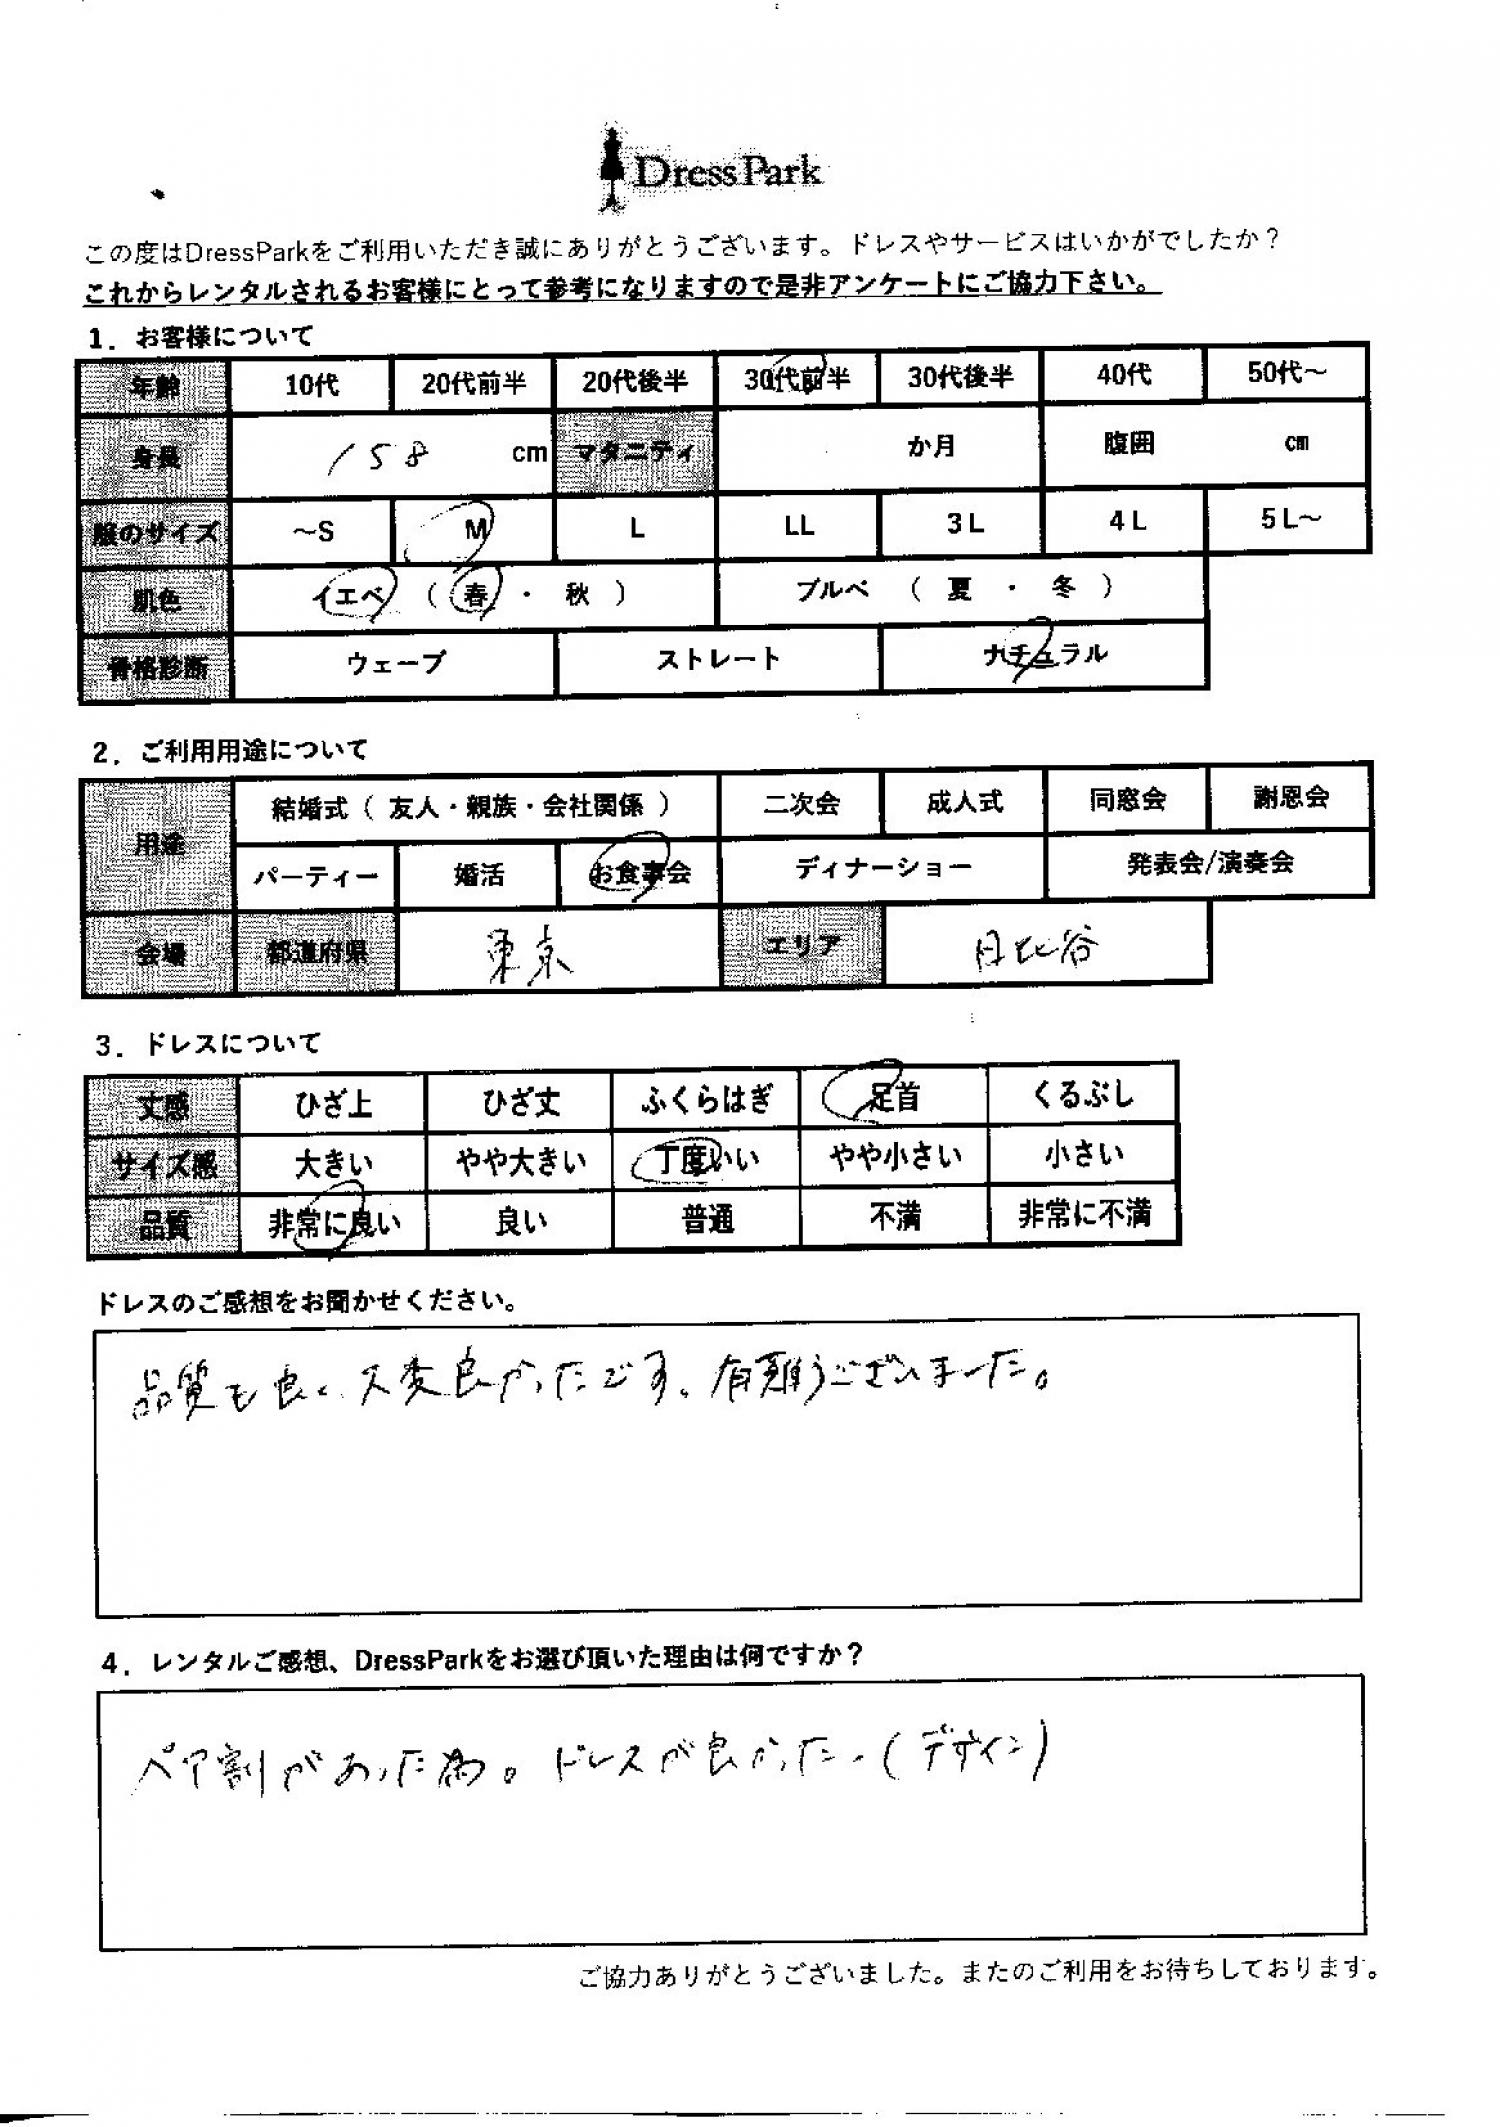 DressPark
この度はDressParkをご利用いただき誠にありがとうございます。ドレスやサービスはいかがでしたか？
これからレンタルされるお客様にとって参考になりますので是非アンケートにご協力下さい。
1．お客様について
年齢 10代 20代前半 20代後半 30代前半 30代後半 40代 50代～
身長 158 cm マタニティ か月 腹囲 cm
服のサイズ ～S M L LL 3L 4L 5L～
肌色 イエベ（春・秋） ブルベ（夏・冬）
骨格診断 ウェーブ ストレート ナチュラル
2．ご利用用途について
用途 結婚式（友人・親族・会社関係） 二次会 成人式 同窓会 謝恩会
パーティー 婚活 お食事会 ディナーショー 発表会/演奏会
会場 都道府県 東京 エリア 日比谷
3．ドレスについて
丈感 ひざ上 ひざ丈 ふくらはぎ 足首 くるぶし
サイズ感 大きい やや大きい 丁度いい やや小さい 小さい
品質 非常に良い 良い 普通 不満 非常に不満
ドレスのご感想をお聞かせください。
品質も良く、大変良かったです。有難うございました。
4．レンタルご感想、DressParkをお選び頂いた理由は何ですか？
ペア割があった為。ドレスが良かった。(デザイン)
ご協力ありがとうございました。またのご利用をお待ちしております。